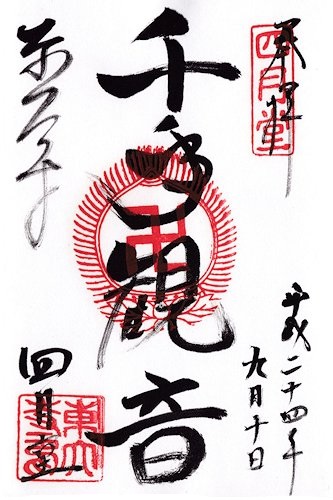 奉拝
四月堂
平成二十四年
九月十日
千手観音
東大寺
四月堂